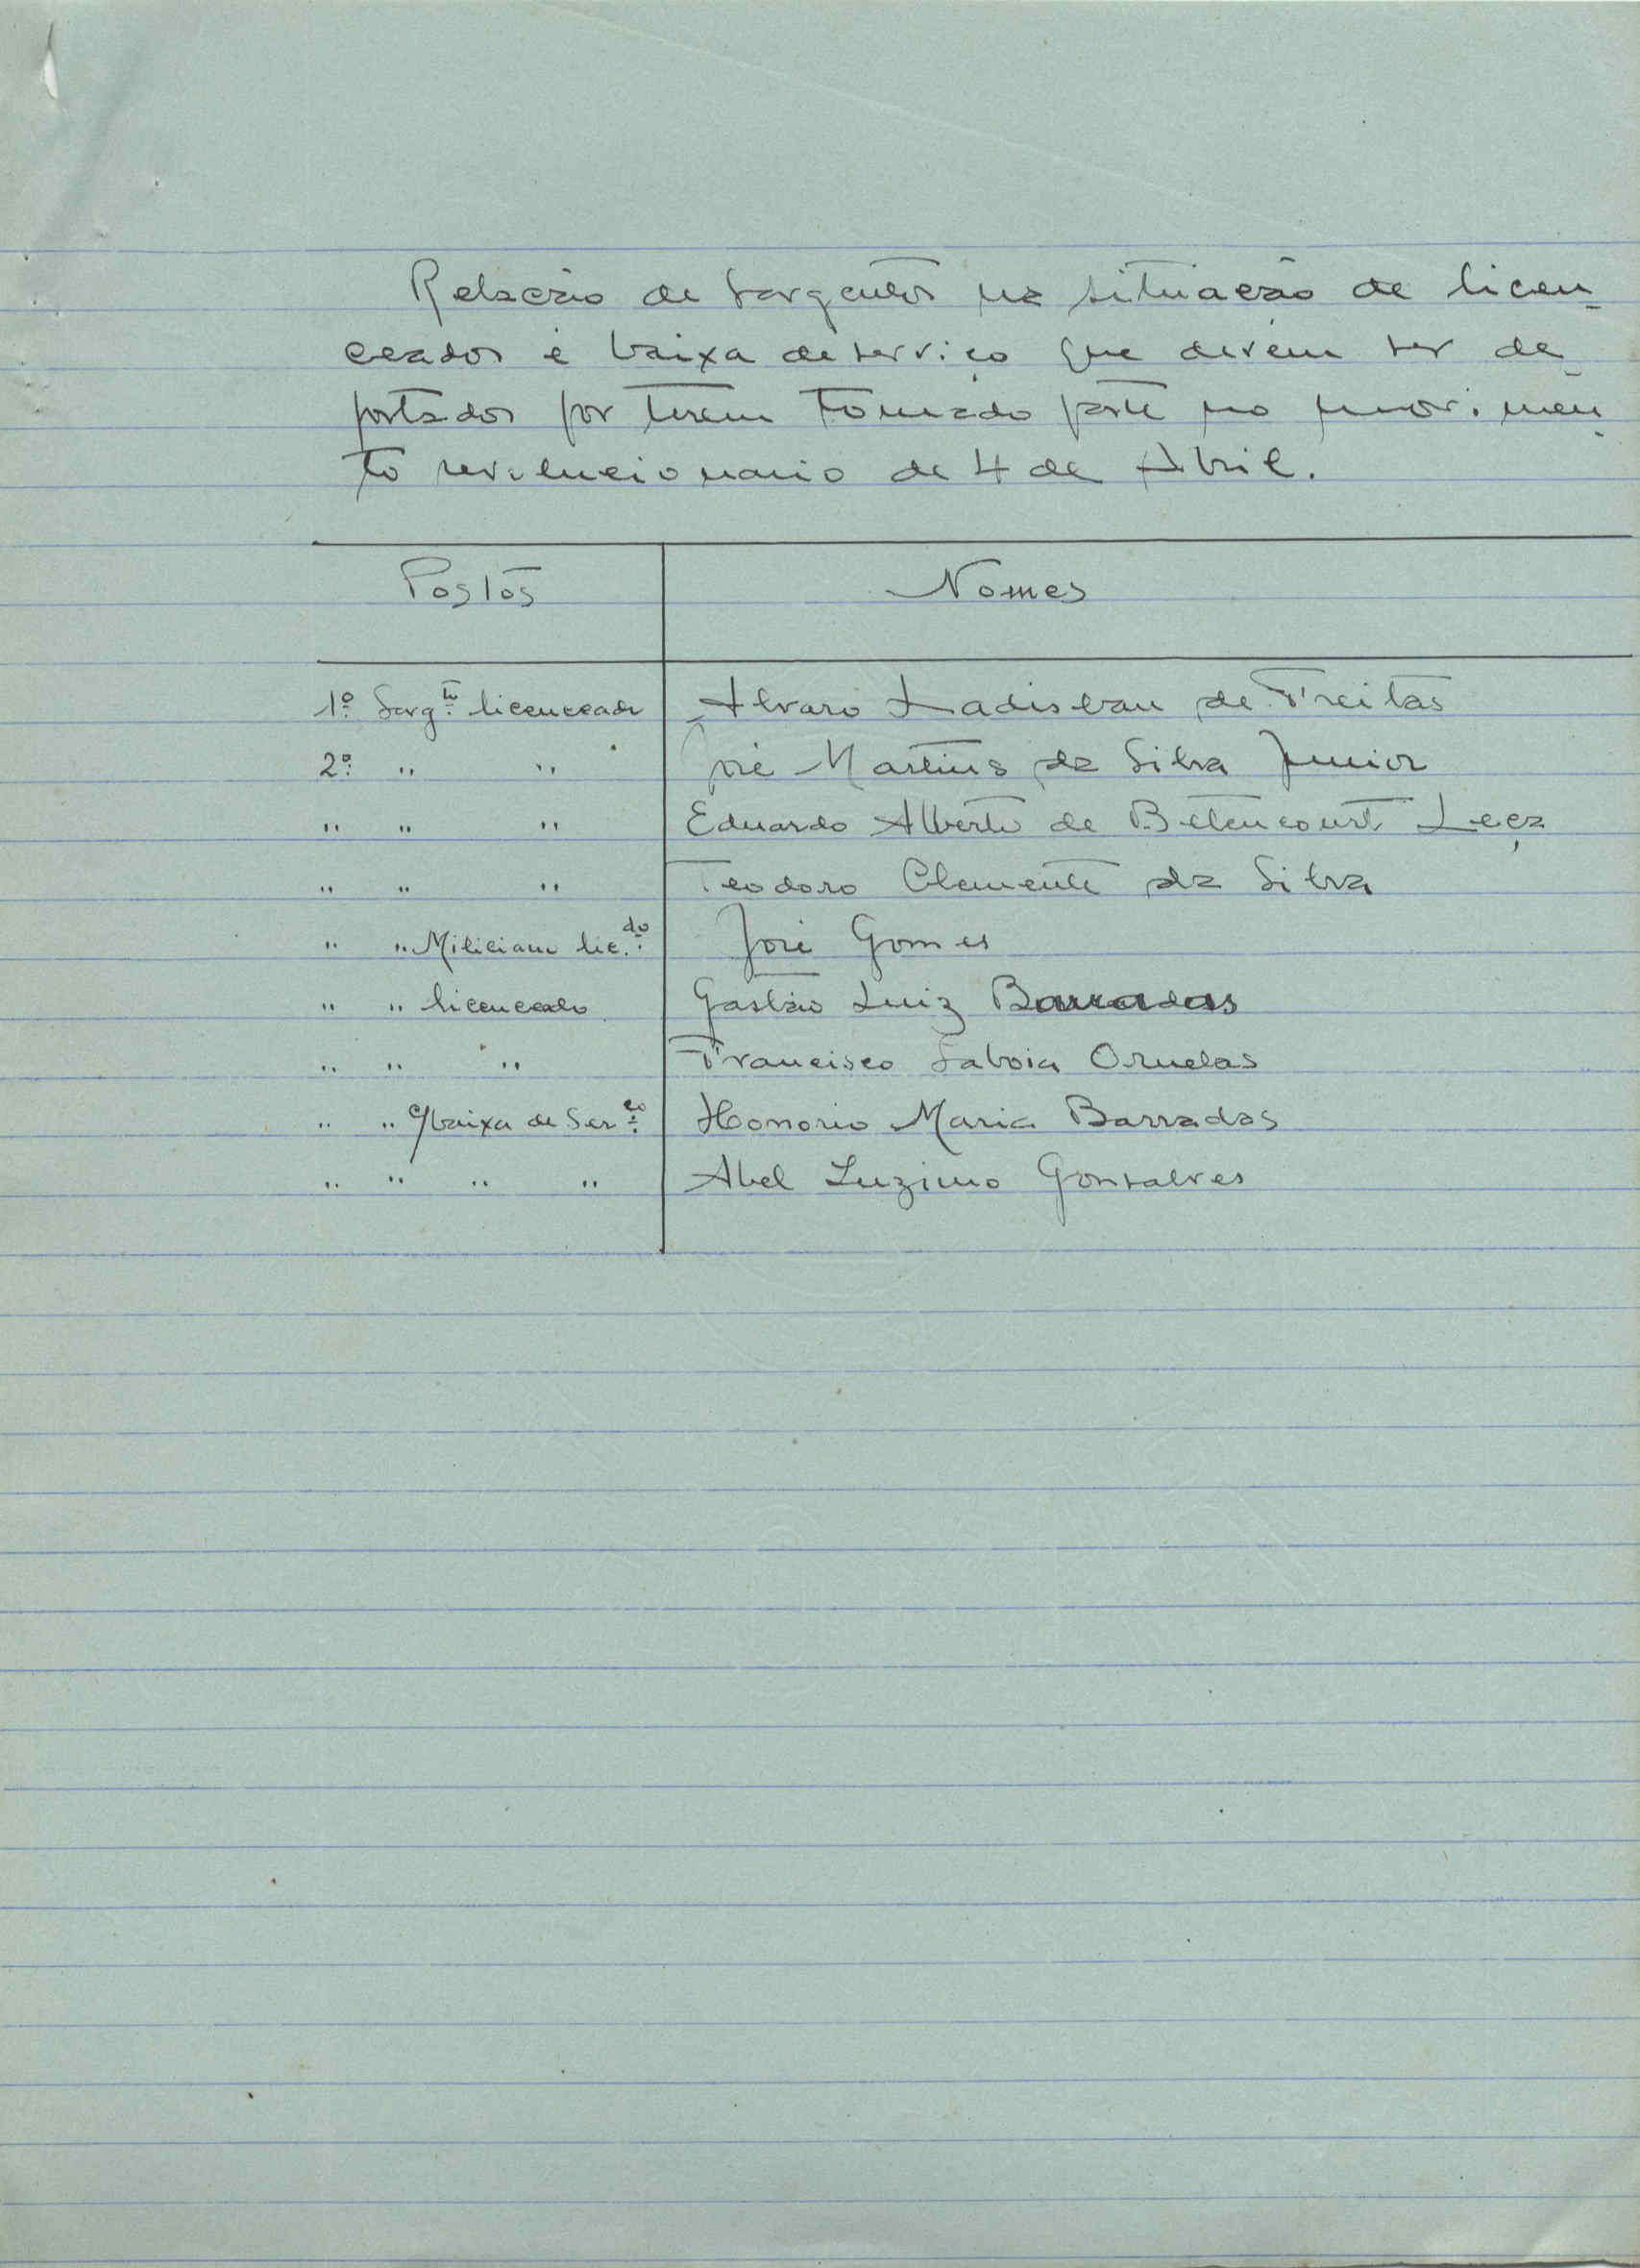 Relação de Sargentos na situação de licen-
ceados e baixa de serviço que devem ser de-
portados por terem tomado parte no movimen-
to revolucionario de 4 de Abril.
Postos Nomes
1º Sargto licenceado Alvaro Ladislau de Freitas
2º " " José Martins da Silva Junior
" " " Eduardo Alberto de Betencourt Leça
" " " Teodoro Clemente da Silva
" " Miliciano lic.do José Gomes
" " licenceado Gastão Luiz Barradas
" " " Francisco Saboia Ornelas
" " c/baixa de Ser.ço Honorio Maria Barradas
" " " " Abel Luzimo Gonsalves